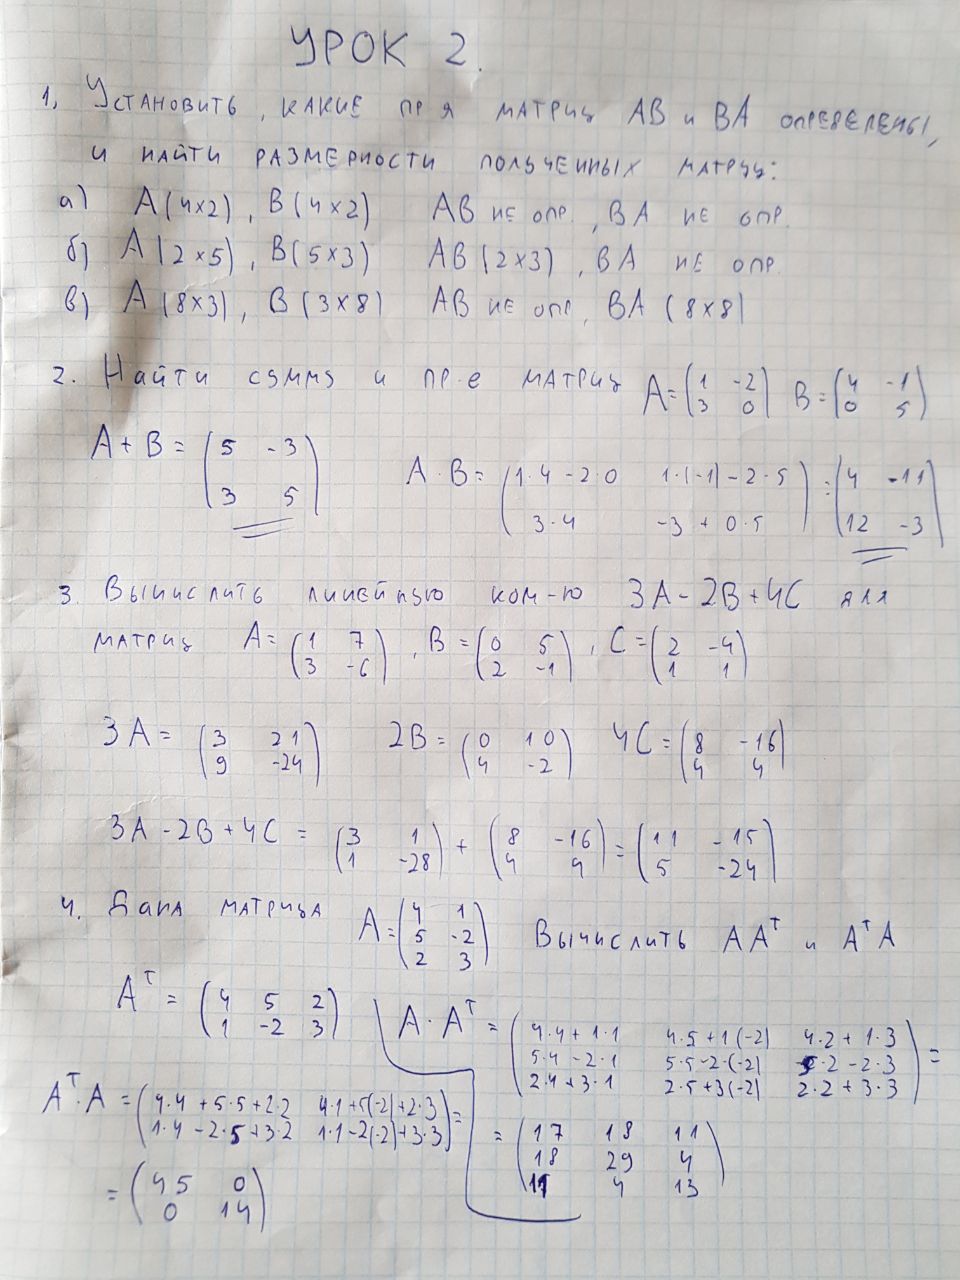 УРОК 2.
1, Установить, какие пр я матриц AB и BA определены,
и найти размерности полученных матриц:
а) A(4x2), B(4x2) AB не опр., BA не опр.
б) A(2x5), B(5x3) AB(2x3), BA не опр.
в) A(8x3), B(3x8) AB не опр, BA (8x8)
2. Найти сумму и пр-е матриц A=(1 -2 B=(4 -1
3 0) 0 5)
A+B= (5 -3
3 5)
A·B= (1·4-2·0 1·(-1)-2·5 = (4 -11
3·4 -3+0·5) 12 -3)
3. Вычислить линейную ком-ю 3A-2B+4C для
матриц A=(1 7 , B=(0 5 , C=(2 -4
3 -6) 2 -1) 1 1)
3A= (3 21 2B= (0 10 4C=(8 -16
9 -24) 4 -2) 4 4)
3A-2B+4C = (3 1 + (8 -16 = (11 -15
1 -28) 4 4) 5 -24)
4. Дана матрица A=(4 1 Вычислить AA^T и A^T A
5 -2
2 3)
A^T = (4 5 2
1 -2 3)
A·A^T = (4·4+1·1 4·5+1(-2) 4·2+1·3
5·4-2·1 5·5-2·(-2) 5·2-2·3
2·4+3·1 2·5+3(-2) 2·2+3·3) =
= (17 18 11
18 29 4
11 4 13)
A^T·A = (4·4+5·5+2·2 4·1+5(-2)+2·3
1·4-2·5+3·2 1·1-2(-2)+3·3) =
= (45 0
0 14)